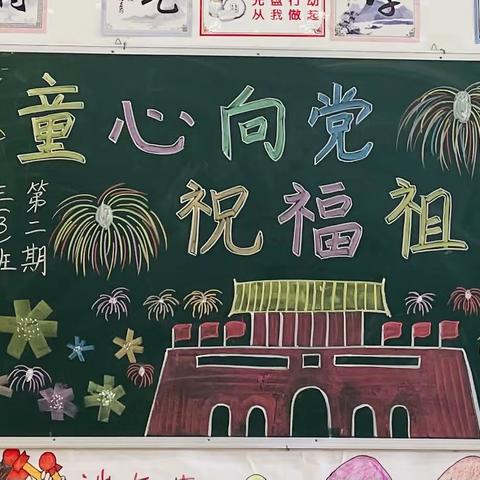 光盘行动
从我做起
童心向党
祝福祖
第二期
三(8)班